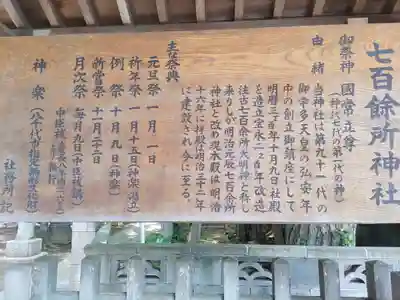 七百餘所神社
御祭神 國常立尊
(神代七代の第一代の神)
由緒 当神社は第九十一代の
御宇多天皇の弘安年
中の創立御鎮座にして
明暦三丁酉年十月九日社殿
を造立宝永二年改造
往古七百余所大明神と称し
来りしが明治元辰七百余所
神社と改め現本殿は明治
十六年に拝殿は明治三十二年
に建設され今に至る
主な祭典
元旦祭 一月一日
祈年祭 一月十五日(神楽奉納)
例祭 十月九日(神楽)
新嘗祭 十一月二十三日
月次祭 毎月九日(中臣祓講)
神楽(八千代市指定無形文化財)
社務所記